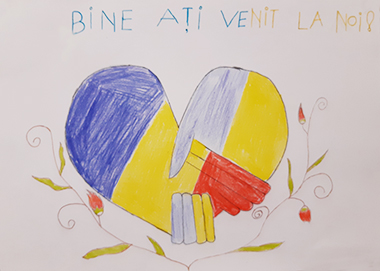 BINE AȚI VENIT LA NOI!